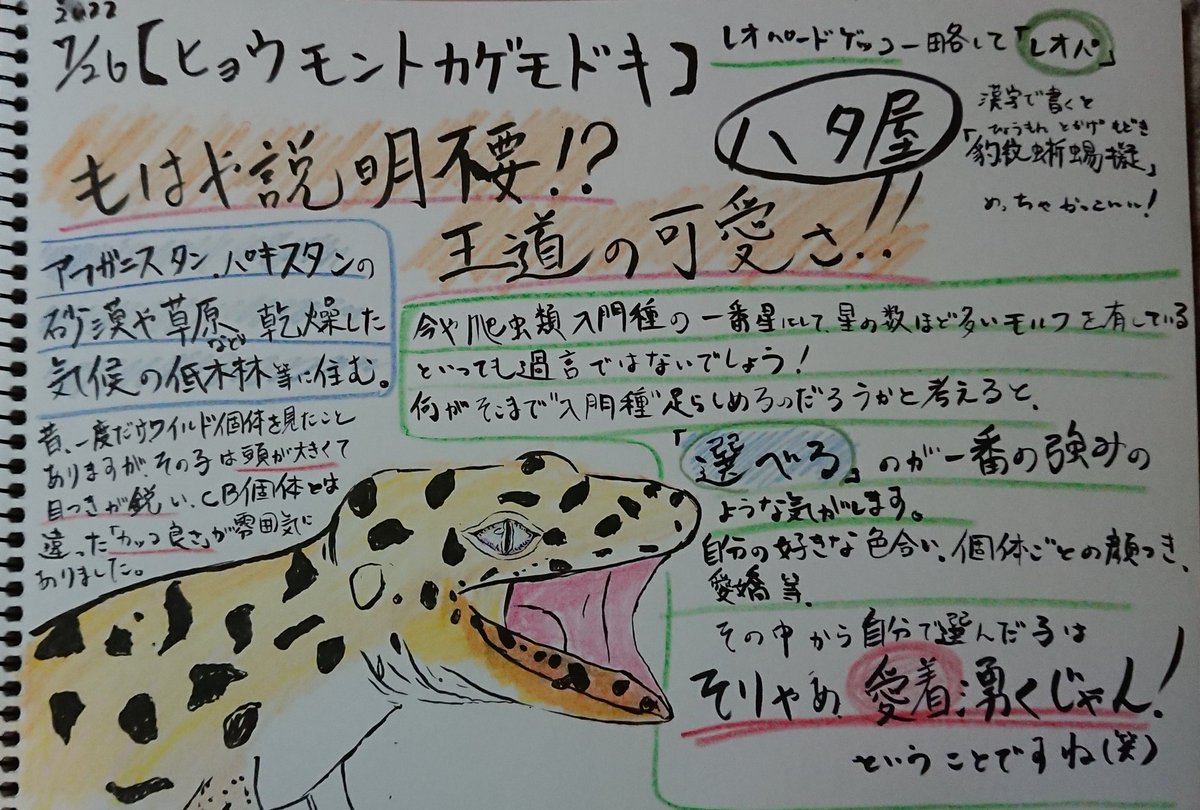 2022
7/26【ヒョウモントカゲモドキ】
レオパードゲッコー略して「レオパ」
ハタ屋
漢字で書くと
ひょうもん とかげ もどき
「豹紋蜥蜴擬」
めっちゃかっこいい!
もはや説明不要!?
王道の可愛さ!!
アフガニスタン、パキスタンの
砂漠や草原など乾燥した
気候の低木林等に住む。
昔、一度だけワイルド個体を見たこと
ありますが、その子は頭が大きくて
目つきが鋭い、CB個体とは
違った「カッコ良さ」が雰囲気に
ありました。
今や爬虫類入門種の一番星にして、星の数ほど多いモルフを有している
といっても過言ではないでしょう!
何がそこまで"入門種"足らしめるのだろうかと考えると、
「選べる」のが一番の強みの
ような気がします。
自分の好きな色合い、個体ごとの顔つき、
愛嬌等、
その中から自分で選んだ子は
そりゃあ愛着湧くじゃん!
ということですね(笑)